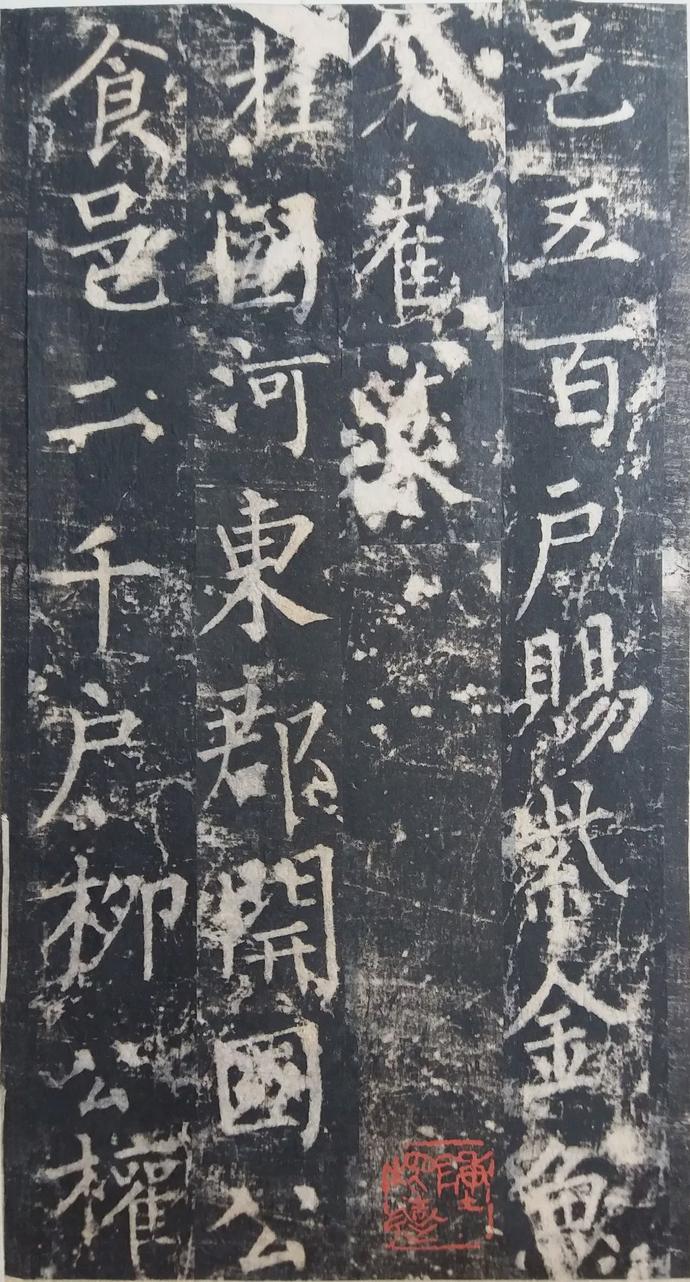 邑五百户賜紫金魚
袋崔
柱國河東郡開國公
食邑二千户柳公權